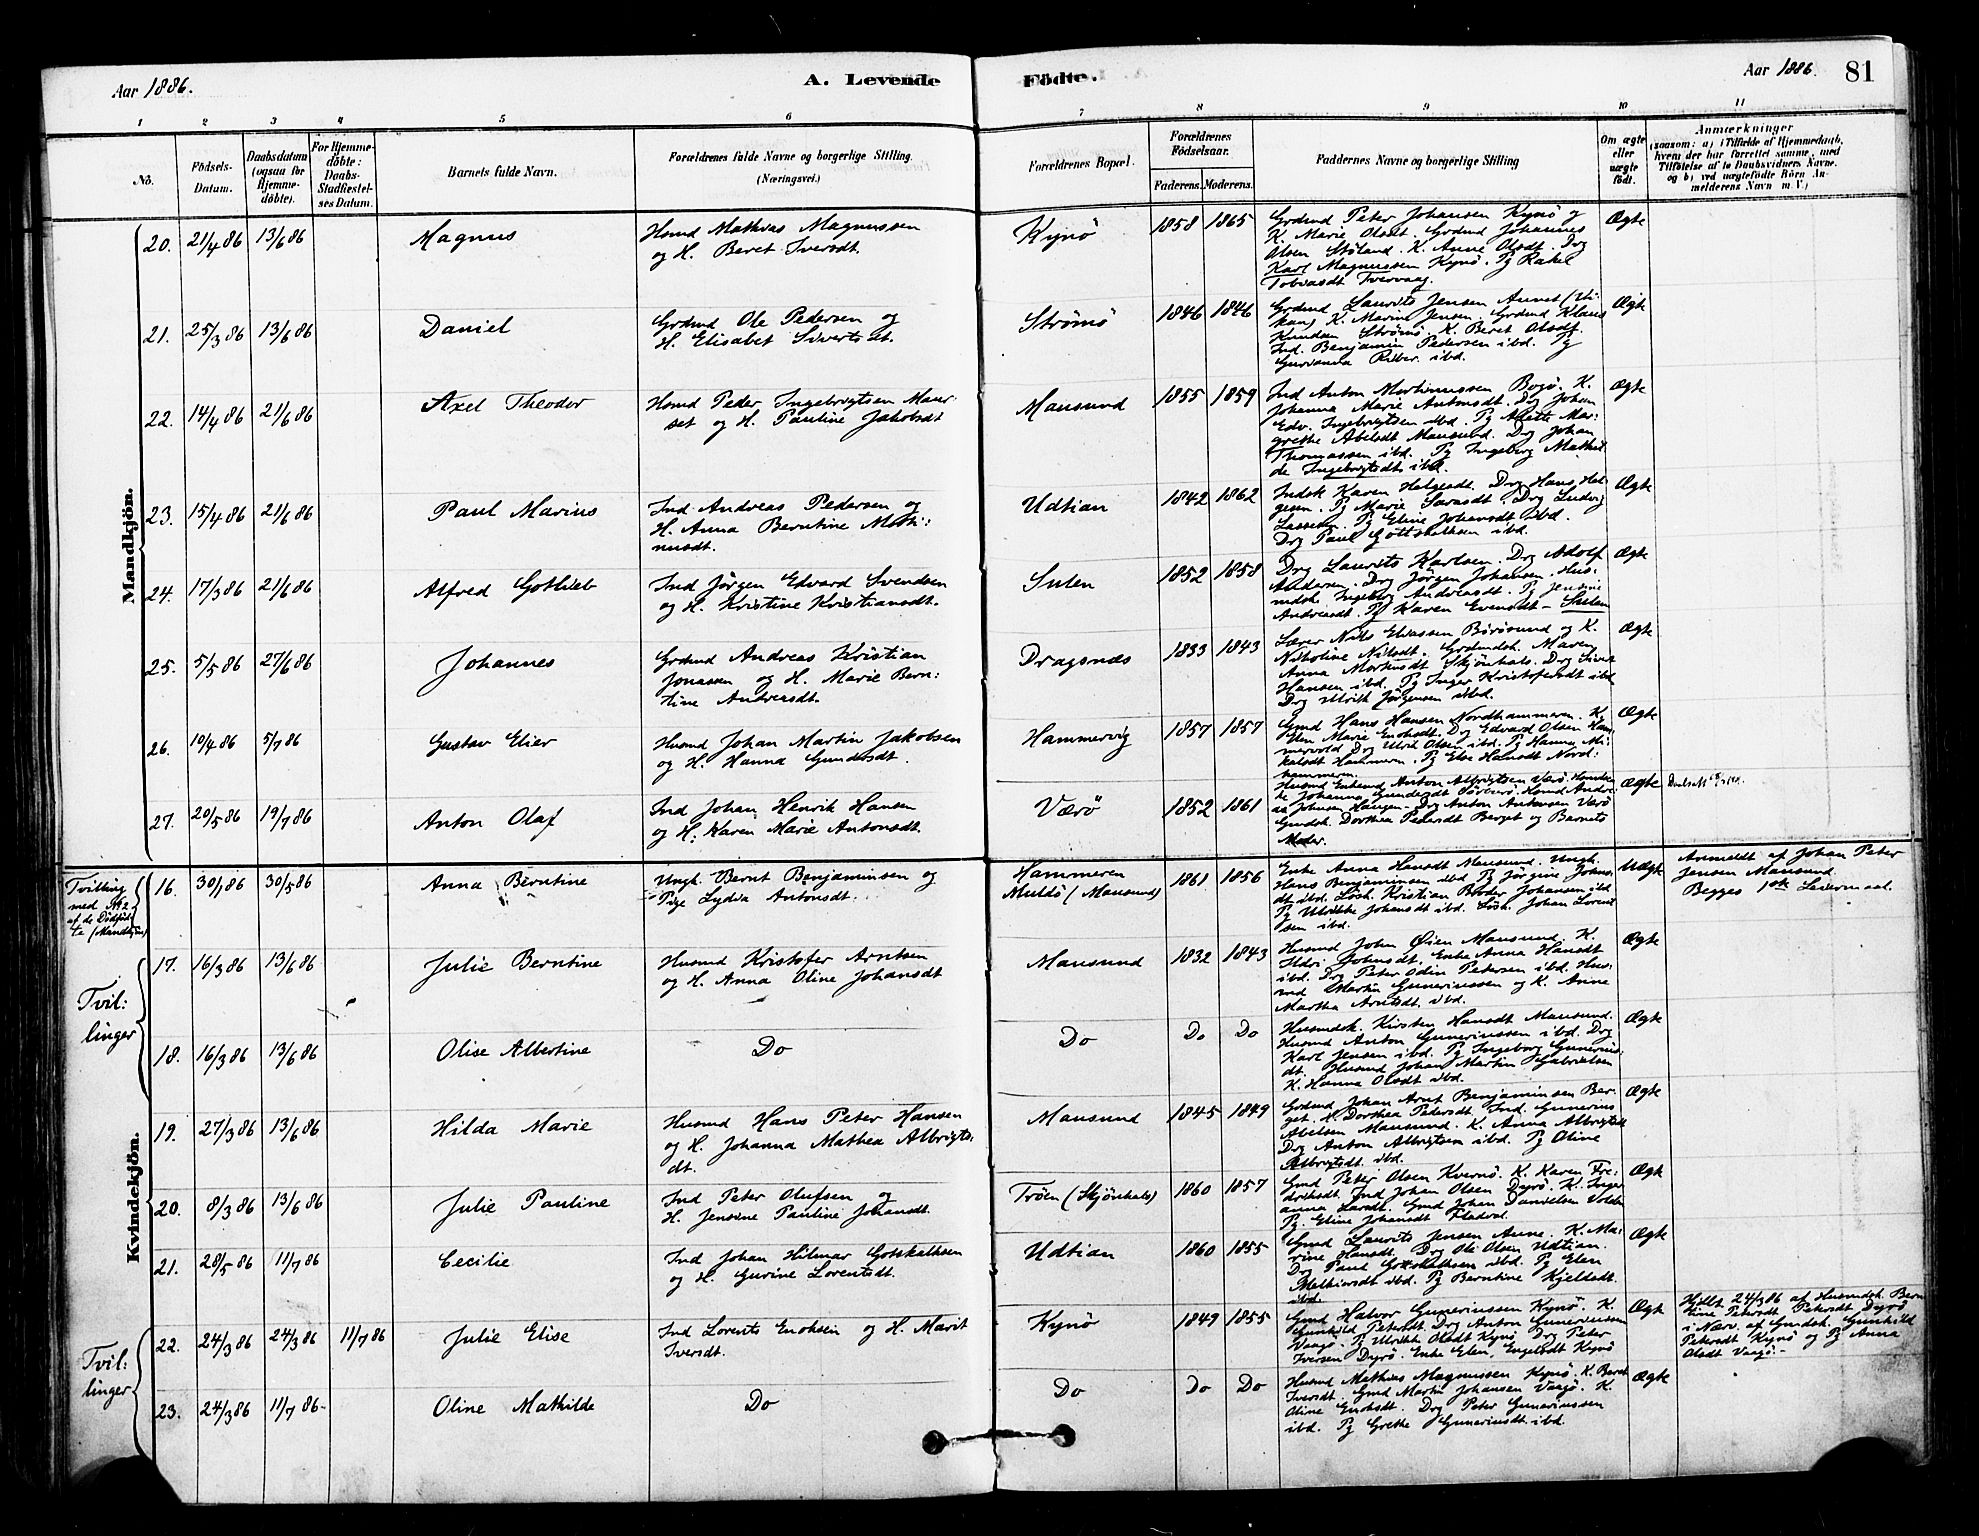 Aar 1886.
A. Levende Födte.
Aar 1886. 81
1 2 3 4 5 6 7 8 9 10 11
No.
Födsels-Datum.
Daabsdatum (ogsaa for Hjemme-döbte).
For Hjemme-döbte: Daabs-Stadfæstel-ses Datum.
Barnets fulde Navn.
Forældrenes fulde Navne og borgerlige Stilling.
(Næringsvei.)
Forældrenes Bopæl.
Forældrenes Födselsaar.
Faderens. Moderens.
Faddernes Navne og borgerlige Stilling
Om ægte eller uægte födt.
Anmærkninger
(saasom: a) i Tilfælde af Hjemmedaab, hvem der har forrettet samme, med Tilföielse af to Daabsvidners Navne, og b) ved uægtefödte Börn An-melderens Navn m. V.)
Mandkjön.
20. 21/4 86 13/6 86 Magnus
Husmd Mathias Magnussen
og H. Beret Iversdt.
Kynö 1858 1865
Grdmd Peter Johansen Kynö og
K. Marie Olsdt. Grdmd Johannes
Olsen Stöland. K. Anne Olsdt. Drg
Karl Magnussen Kynö. Pg Rakel
Tobiasdt Tvervaag.
Ægte
21. 25/3 86 13/6 86 Daniel
Grdmd Ole Pedersen og
H. Elisabet Sivertsdt.
Strömö 1846 1846
Grdmd Laurits Jensen
K. Marine Jensen. Grdmd Klaus
Knudsen Strömö. K. Beret Olsdt.
Ind. Benjamin Pedersen ibd. Pg
Gurianna Riber. ibd.
Ægte
22. 14/4 86 21/6 86 Axel Theodor
Husmd Peder Ingebrigtsen Maus-
set og H. Pauline Jakobsdt
Mausund 1855 1859
Ind Anton Martinussen Bogö. K.
Johanna Marie Antonsdt. Drg Johan
Edv. Ingebrigtsen ibd. Pg Mar:
grethe Abelsdt Mausund. Drg Johan
Thomassen ibd. Pg Ingeborg Mathil
de Ingebrigtsdt ibd.
Ægte
23. 15/4 86 21/6 86 Paul Marius
Ind Andreas Pedersen og
H. Anna Berntine Mati:
nusdt.
Udtian 1842 1862
Indsk Karen Helgesdt. Drg Hans Hel
gesen. Pg Marie Sarasdt. Drg Ludvig
Lassesen. Pg Eline Johansdt ibd.
Drg Paul Gottskalksen ibd.
Ægte
24. 17/3 86 21/6 86 Alfred Gotlieb
Ind Jörgen Edvard Svendsen
og H. Kristine Kristiansdt.
Sulen 1852 1858
Drg Laurits Karlsen. Drg Adolf
Andersen. Drg Jörgen Johansen. Hus:
mdsk. Ingeborg Andreasdt. Pg Jensine
Andreasdt. Pg Karen Evensdt - Sulen
Ægte
25. 5/5 86 27/6 86 Johannes
Grdmd Andreas Kristian
Jonassen og H. Marie Bern:
tine Andreasdt.
Dragsnæs 1833 1843
Lærer Nils Eliassen Börösund og K.
Nikoline Nilsdt. Grdmdsk. Maren
Anna Markusdt Skjönhals. Drg Sivert
Hansen ibd. Pg Inger Kristofersdt ibd
Drg Ulrik Jörgensen ibd.
Ægte
26. 19/4 86 5/7 86 Gustav Elier
Husmd Johan Martin Jakobsen
og H. Hanna Gundersdt.
Hammervig 1857 1857
Gmd Hans Hansen Nordhammeren. K.
Elen Marie Enoksdt. Drg Edvard Olsen Ham
mervold Drg Ulrik Olsen ibd. Pg Hanna Mi:
kalsdt Hammeren. Pg Else Hansdt Nord:
hammeren.
Ægte
27. 20/5 86 19/7 86 Anton Olaf
Ind Johan Henrik Hansen
og H. Karen Marie Antonsdt.
Værö 1852 1861
Husmd Enkemd Anton Albrigtsen Værö.
Johanna Gundersdt Husmd Andre
as Johnsen Haugen. Drg Anton Antonsen Værö
Gmdsk. Dorthea Petersdt Berget og Barnets
Moder.
Ægte
Kvindekjön.
Tvilling
med No 2
af de Dödföd-
te (Mandkjön)
16. 30/1 86 30/5 86 Anna Berntine
Ungk. Bernt Benjaminsen og
Pige Lydia Antonsdt.
Hammeren
Muldö (Mausund) 1861 1856
Enke Anna Hansdt Mausund. Ungk.
Hans Benjaminsen ibd Pg Jörgine Johans
dt ibd. Lösk. Kristian Broder Johansen ibd
Pg Ulrikke Johansdt ibd. Lösk. Johan Lorent
sen ibd.
Uægte
Anmeldt af Johan Peter
Jensen Mausund.
Begges 1ste Leiermaal.
Tvil:
linger
17. 16/3 86 13/6 86 Julie Berntine
Husmd Kristofer Arntsen
og H. Anna Oline Johansdt
Mausund 1832 1843
Husmd John Öien Mausund. K.
Ildri Johnsdt. Enke Anna Hansdt
ibd. Drg Peter Odin Petersen ibd. Hus:
md Martin Gunerinussen og K. Anne
Martha Arntsdt. ibd.
Ægte
18. 16/3 86 13/6 86 Olise Albertine
Do
Do Do Do
Husmdsk. Kirsten Hansdt Mausund.
Husmd Anton Gunerinussen ibd. Drg
Karl Jensen ibd. Pg Ingeborg Gunerius:
dt. Husmd Johan Martin Gabrielsen
K. Hanna Olsdt ibd.
Ægte
19. 27/3 86 13/6 86 Hilda Marie
Husmd Hans Peter Hansen
og H. Johanna Mathea Albrigts:
dt.
Mausund 1845 1849
Grdmd Johan Arnt Benjaminsen Ber
get. K Dorthea Petersdt. Ind. Gunerius
Abelsen Mausund. K. Anna Albrigtsdt
Drg Anton Albrigtsen ibd. Pg Oline
Albrigtsdt. ibd.
Ægte
20. 8/3 86 13/6 86 Julie Pauline
Ind Peter Olufsen og
H. Jensine Pauline Johansdt.
Tröen (Skjönhals) 1860 1857
Gmd Peter Olsen Kvernö. K. Karen Fre:
driksdt. Ind Johan Olsen Dyrö. K. Inger
anna Larsdt. Gmd Johan Danielsen Volden
Pg. Eline Johansdt Fladval.
Ægte
21. 28/5 86 11/7 86 Cecilie
Ind Johan Hilmar Gotskalksen
og H. Gurine Lorentsdt.
Udtian 1860 1855
Gmd Laurits Jensen Aune. K. Ma:
rine Hansdt. Drg Ole Olsen Udtian.
Drg Paul Gotskalksen ibd. Pg Elen
Mathiasdt ibd. Pg Berntine Kjeldsdt.
ibd.
Ægte
Tvil:
linger
22. 24/3 86 24/3 86 11/7 86 Julie Elise
Ind Lorents Enoksen og H. Marit
Iversdt.
Kynö 1849 1855
Gmd Halvor Gunerinussen Kynö. K.
Gunhild Petersdt. Drg Anton Gunerinussen
Vaagö. Pg Ulrikke Olsdt Kynö Drg Peter
Iversen Dyrö. Enke Elen Engelsdt Kynö
Ægte
Hdbt 24/3 86 af Husmdsk. Bern
tine Petersdt Dyrö
i Nærv. af Gmdsk. Gunhild
Petersdt Kynö og Pg Anna
Olsdt Vaagö.-
23. 24/3 86 11/7 86- Oline Mathilde
Do
Do Do Do
Husmd Mathias Magnussen Kynö. K. Beret
Iversdt. Gmd Martin Johansen Vaagö. K.
Oline Enoksdt. Drg Peter Gunerinussen
ibd. Pg Grethe Gunerinusdt. ibd.
Ægte